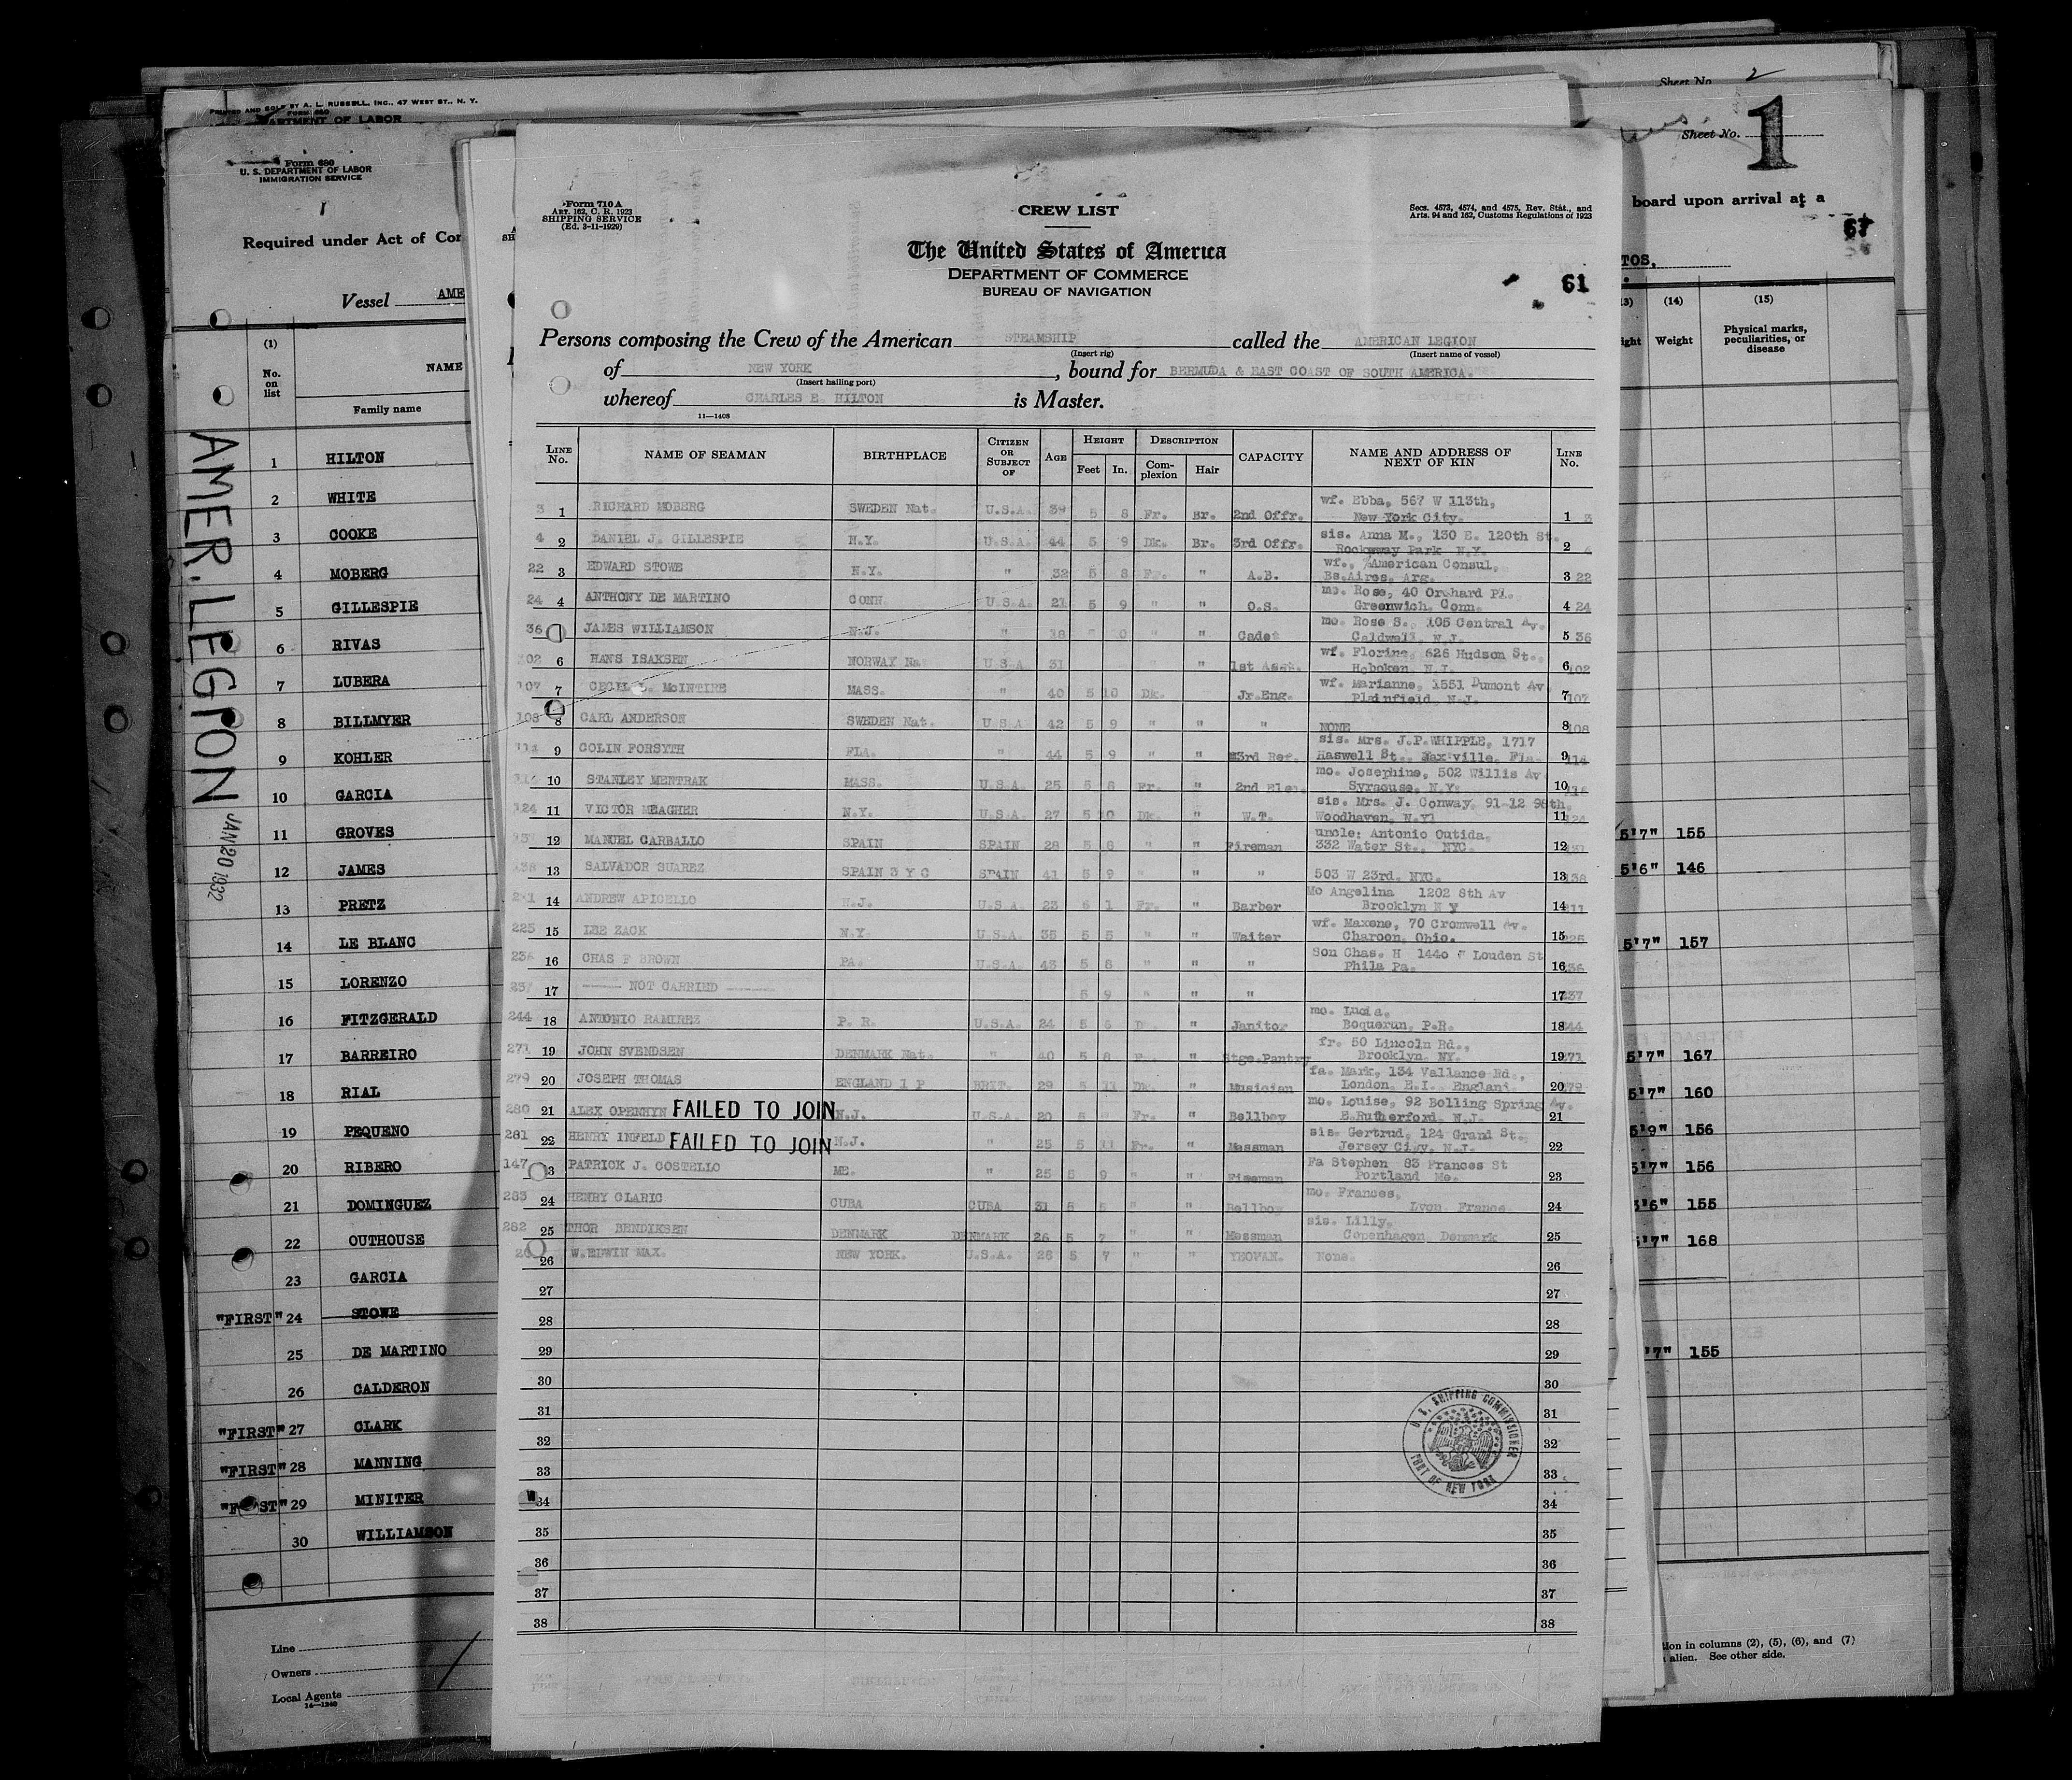 PRINTED AND SOLD BY A. L. RUSSELL, INC., 47 WEST ST., N. Y.
FORM 680
DEPARTMENT OF LABOR
Form 680
U. S. DEPARTMENT OF LABOR
IMMIGRATION SERVICE
Required under Act of Con
Vessel AME
(1)
No. on list
NAME
Family name
1 HILTON
2 WHITE
3 COOKE
4 MOBERG
5 GILLESPIE
6 RIVAS
7 LUBERA
8 BILLMYER
9 KOHLER
10 GARCIA
11 GROVES
12 JAMES
13 PRETZ
14 LE BLANC
15 LORENZO
16 FITZGERALD
17 BARREIRO
18 RIAL
19 PEQUENO
20 RIBERO
21 DOMINGUEZ
22 OUTHOUSE
23 GARCIA
"FIRST" 24 STOWE
25 DE MARTINO
26 CALDERON
"FIRST" 27 CLARK
"FIRST" 28 MANNING
"F ST" 29 MINITER
30 WILLIAMSON
Line
Owners
Local Agents
14—1240
AMER. LEGION JAN 20 1932
Form 710 A
ART. 162, C. R. 1923
SHIPPING SERVICE
(Ed. 3-11-1929)
CREW LIST
Secs. 4573, 4574, and 4575, Rev. Stat., and
Arts. 94 and 162, Customs Regulations of 1923
The United States of America
DEPARTMENT OF COMMERCE
BUREAU OF NAVIGATION
61
Persons composing the Crew of the American STEAMSHIP called the AMERICAN LEGION
(Insert rig) (Insert name of vessel)
of NEW YORK, bound for BERMUDA & EAST COAST OF SOUTH AMERICA.
(Insert hailing port)
whereof CHARLES E. HILTON is Master.
11—1408
LINE No. NAME OF SEAMAN BIRTHPLACE CITIZEN OR SUBJECT OF AGE HEIGHT Feet In. DESCRIPTION Complexion Hair CAPACITY NAME AND ADDRESS OF NEXT OF KIN LINE No.
3 1 RICHARD MOBERG SWEDEN Nat. U.S.A. 39 5 8 Fr. Br. 2nd Offr. wf. Ebba, 567 W 113th, New York City. 1 3
4 2 DANIEL J. GILLESPIE N.Y. U.S.A. 44 5 9 Dk. Br. 3rd Offr. sis. Anna M., 130 E. 120th St. Rockaway Park N.Y. 2 4
22 3 EDWARD STOWE N.Y. " 32 5 8 Fr. " A.B. wf., %American Consul, Bs.Aires, Arg. 3 22
24 4 ANTHONY DE MARTINO CONN. U.S.A. 21 5 9 " " O.S. mo. Rose, 40 Orchard Pl. Greenwich, Conn. 4 24
36 JAMES WILLIAMSON N.J. " 18 " 0 " " Cadet mo. Rose S., 105 Central Av. Caldwell, N.J. 5 36
102 6 HANS ISAKSEN NORWAY Na U.S.A. 31 " " 1st Asst. wf. Florine, 626 Hudson St., Hoboken, N.J. 6 102
107 7 CECIL McINTIRE MASS. " 40 5 10 Dk. Jr.Eng. wf. Marianne, 1551 Dumont Av Plainfield, N.J. 7 107
108 8 CARL ANDERSON SWEDEN Nat. U.S.A 42 5 9 " " " NONE 8 108
114 9 COLIN FORSYTH FLA. " 44 5 9 " " 3rd Ref. sis. Mrs. J.P.WHIPPLE, 1717 Haswell St., Jaxville, Fla. 9 114
10 STANLEY MENTRAK MASS. U.S.A. 25 5 8 Fr. " 2nd Elec. mo. Josephine, 502 Willis Av Syracuse, N.Y. 10
124 11 VICTOR MEAGHER N.Y. U.S.A. 27 5 10 Dk. " W.T. sis. Mrs. J. Conway, 91-12 98th. Woodhaven, N.Y. 11 124
12 MANUEL CARBALLO SPAIN SPAIN 28 5 8 " " Fireman uncle: Antonio Outida, 332 Water St., NYC. 12
138 13 SALVADOR SUAREZ SPAIN 3 Y C SPAIN 41 5 9 " " " 503 W 23rd. NYC. 13 138
14 ANDREW APICELLO N.J. U.S.A. 23 6 1 Fr. " Barber Mo Angelina 1202 8th Av Brooklyn N y 14
225 15 LEE ZACK N.Y. U.S.A. 35 5 5 " " Waiter wf. Maxene, 70 Cromwell Av. Charoon, Ohio. 15 225
236 16 CHAS F BROWN PA. U.S.A. 43 5 8 " " " Son Chas. H 1440 W Louden St Phila Pa. 16 236
237 17 ------ NOT CARRIED ------ 5 9 " " " 17 237
244 18 ANTONIO RAMIREZ P. R. U.S.A. 24 5 6 D " Janitor mo. Lucia, Boqueran, P.R. 18 244
271 19 JOHN SVENDSEN DENMARK Nat. " 40 5 8 F. " Stge.Pantry fr. 50 Lincoln Rd., Brooklyn, NY. 19 271
279 20 JOSEPH THOMAS ENGLAND 1 P BRIT. 29 5 11 Dk. " Musician fa. Mark, 134 Vallance Rd., London, E.I. England. 20 279
280 21 ALEX OPENHYN FAILED TO JOIN N.J. U.S.A. 20 5 " Fr. " Bellboy mo. Louise, 92 Bolling Spring Av. E.Rutherford, N.J. 21
281 22 HENRY INFELD FAILED TO JOIN N.J. " 25 5 11 Fr. " Messman sis. Gertrud, 124 Grand St., Jersey City, N.J. 22
147 3 PATRICK J. COSTELLO ME. " 25 5 9 " " Fireman Fa Stephen 83 Frances St Portland Me. 23
283 24 HENRY CLARIC CUBA CUBA 31 5 " " Bellboy mo. Frances, Lyon France 24
282 25 THOR BENDIKSEN DENMARK DENMARK 26 5 7 " " Messman sis. Lilly, Copenhagen, Denmark 25
26 W.EDWIN MAX. NEW YORK. U.S.A. 28 5 7 " " YEOMAN. None. 26
27 27
28 28
29 29
30 30
31 31
32 32
33 33
34 34
35 35
36 36
37 37
38 38
U. S. SHIPPING COMMISSIONER
PORT OF NEW YORK
Sheet No. 2
Sheet No. 1
board upon arrival at a
67
TOS,
13) (14) (15)
ight Weight Physical marks, peculiarities, or disease
5'7" 155
5'6" 146
5'7" 157
5'7" 167
5'7" 160
5'9" 156
5'7" 156
5'6" 155
5'7" 168
'7" 155
tion in columns (2), (5), (6), and (7)
alien. See other side.